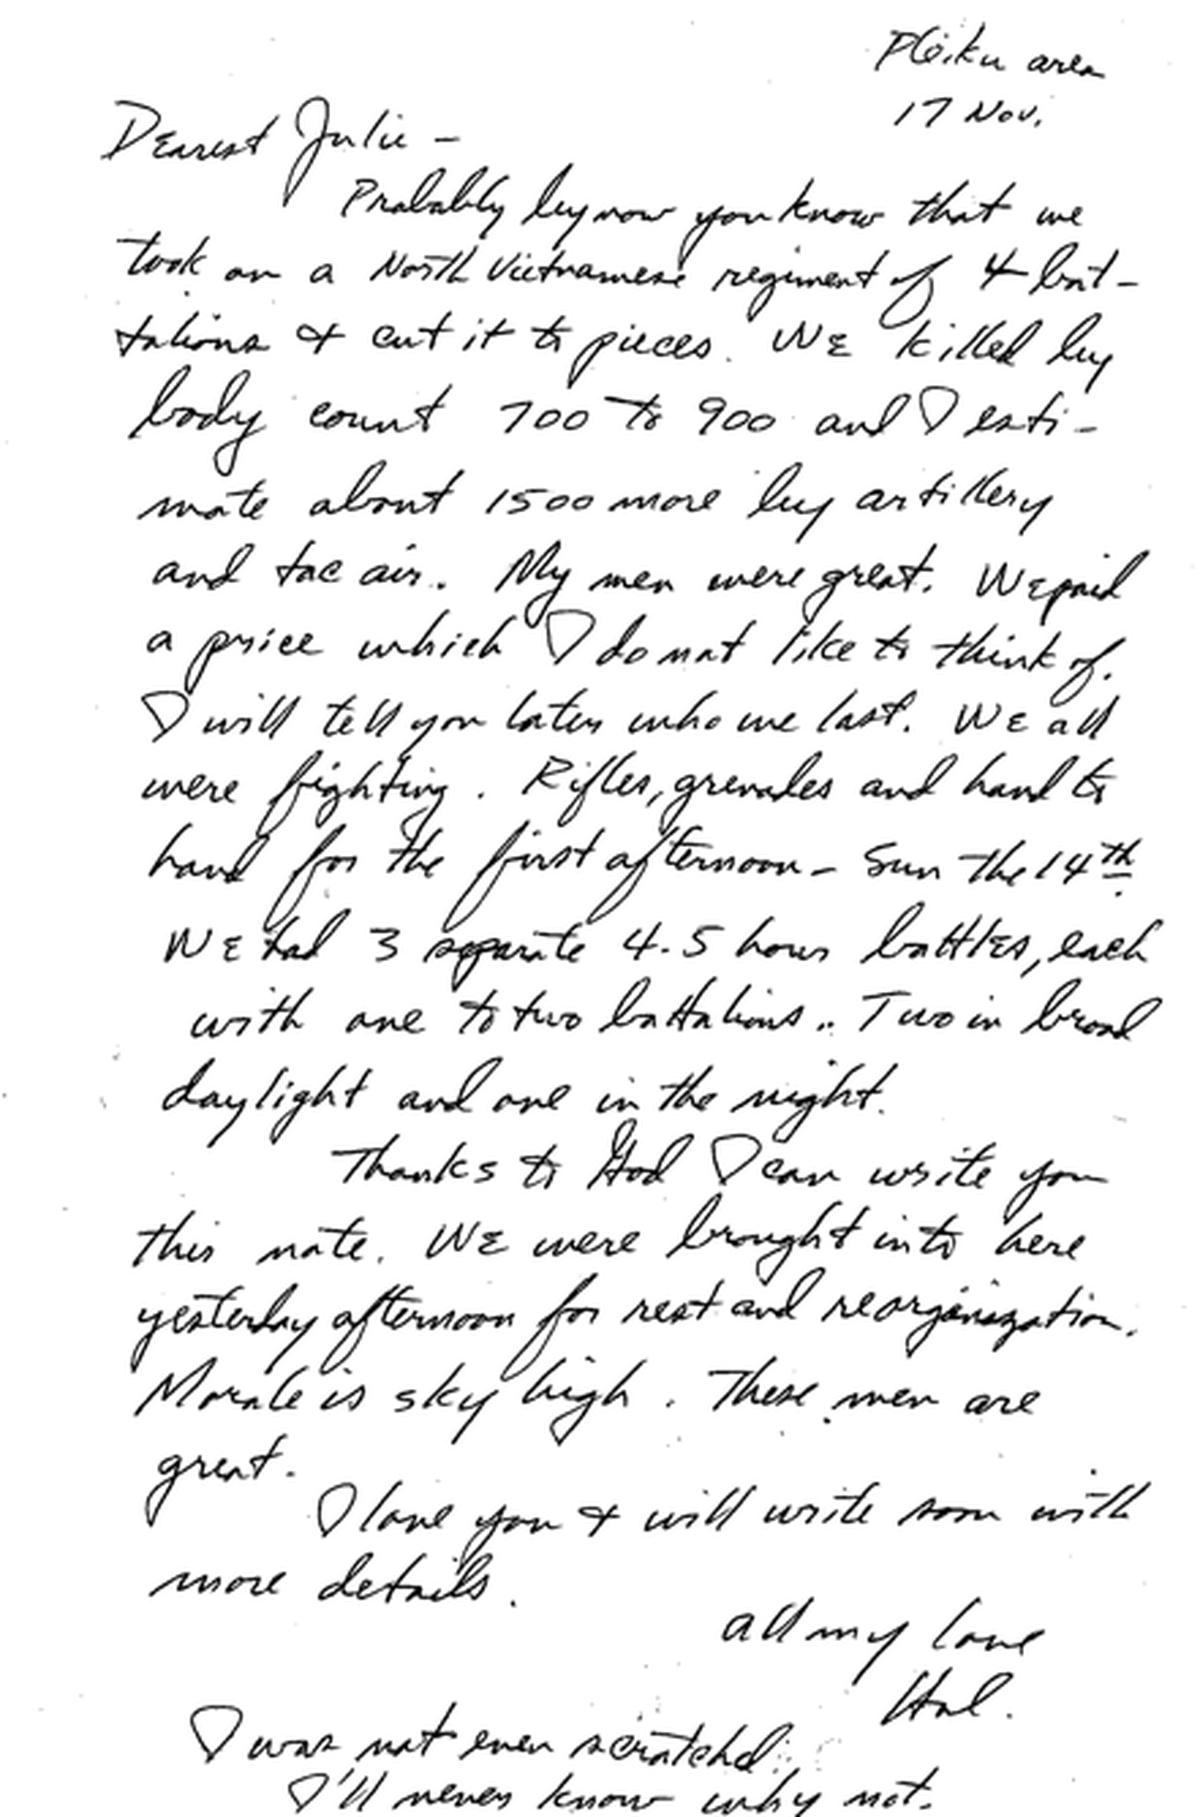 Pleiku area
17 Nov.
Dearest Julie -
Probably by now you know that we
took on a North Vietnamese regiment of 4 bat-
talions & cut it to pieces. We killed by
body count 700 to 900 and I esti-
mate about 1500 more by artillery
and tac air. My men were great. We paid
a price which I do not like to think of.
I will tell you later who we lost. We all
were fighting. Rifles, grenades and hand to
hand for the first afternoon - Sun the 14th.
We had 3 separate 4-5 hour battles, each
with one to two battalions.. Two in broad
daylight and one in the night.
Thanks to God I can write you
this note. We were brought into here
yesterday afternoon for rest and reorganization.
Morale is sky high. These men are
great.
I love you & will write soon with
more details.
all my love
Hal.
I was not even scratchd.
I'll never know why not.